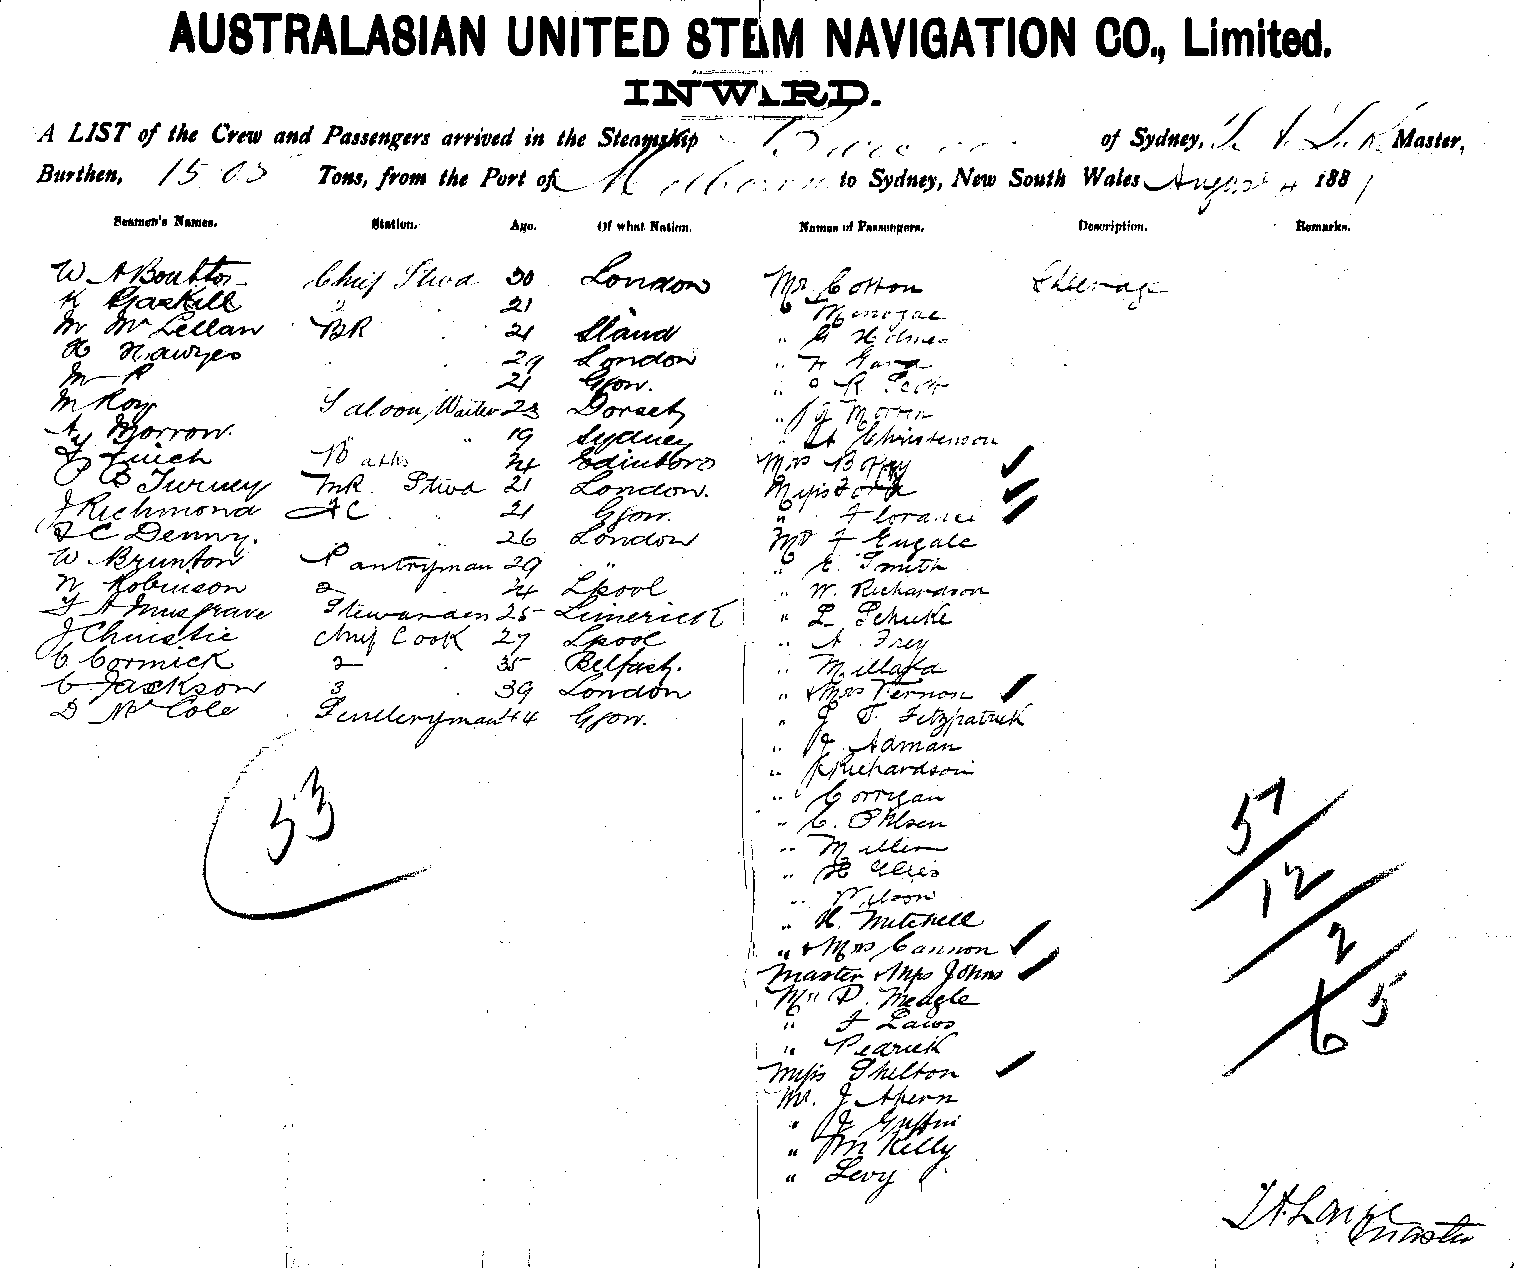 AUSTRALASIAN UNITED STEAM NAVIGATION CO., Limited.
INWARD.
A LIST of the Crew and Passengers arrived in the Steamship of Sydney, Master,
Burthen, 1503 Tons, from the Port of Melbourne to Sydney, New South Wales August 4 188
Seamen's Names. Station. Age. Of what Nation. Names of Passengers. Description. Remarks.
W A Chief Stwd 30 London Mr Cotton Steerage
Gaskill 2 21
M McLellan BR 21 " G Holmes
H Hawyes 29 London
21 Gow.
M Roy Saloon Waiter 23 Dorset " R Scott
Morrow. " " 19 Sydney " J Morrin
24 Edinboro " Christenson
B Turney Stwd 21 London. Mrs
J Richmond 21 Gow. Miss Ford
F C Denny. 26 London " Florance
W Brunton Pantryman 29 " Mr F Eugale
Robinson 2 24 Lpool " E. Smith
Musgrave Stewardess 25 Limerick " W. Richardson
J Christie Chief Cook 27 Lpool " L
C Cormick 2 35 Belfast. " A Frey
C Jackson 3 39 London " Millard
D McCole Sculleryman 44 Gow. " & Mrs Vernon
" J T. Fitzpatrick
" J. Adman
" J Richardson
" Corrigan
" C. Ohlsen
" Miller
" H Ellis
" Wilson
" H. Mitchell
" & Mrs Cannon
Master & Miss Johns
Mr P. Meagle
" F Laws
" Pedrick
Miss Shelton
Mr. J Ahern
" J Griffin
" M Kelly
" Levy
53
57
12
2
65
Master